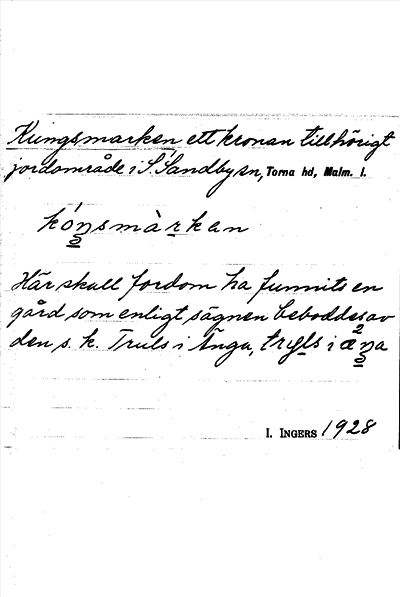 Kungsmarken ett kronan tillhörigt
jordområde i S. Sandby sn, Torna hd, Malm. l.
kóŋsmàrkan
Här skall fordom ha funnits en
gård som enligt sägnen beboddes av
den s. k. Truls i Änga, tryls i æŋa
I. INGERS 1928